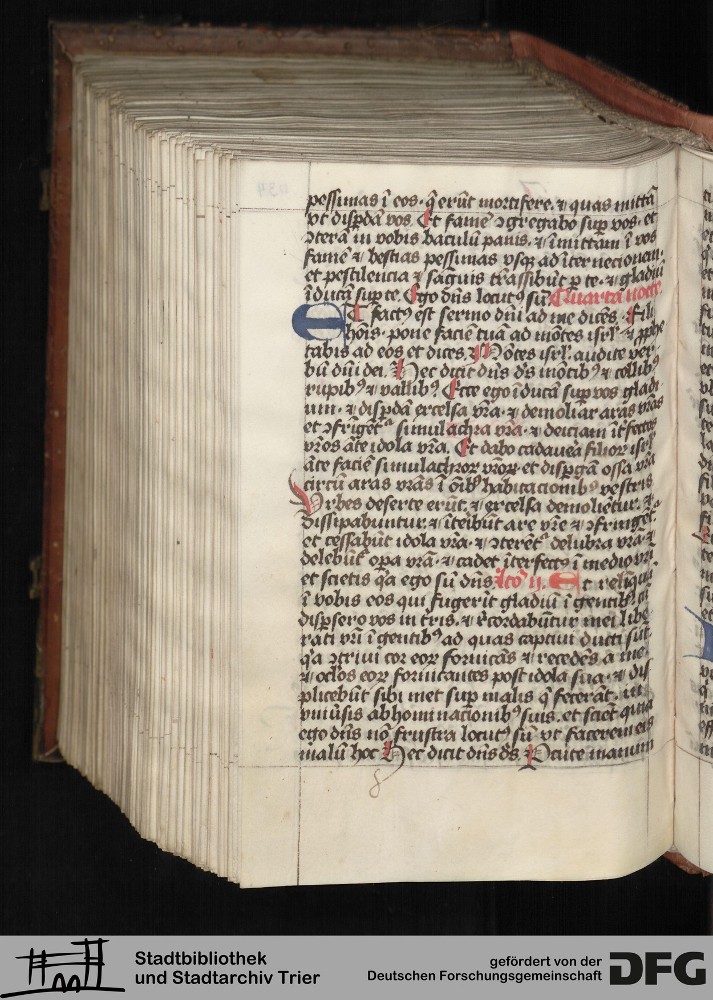 pessimas ī eos· q̄ erūt mortifere· ⁊ quas mittā
vt disp̄dā vos· Et famē ↄgregabo sup̄ vos· et
ↄterā in vobis baculū panis· ⁊ īmittam ī vos
famē ⁊ bestias pessimas vsq̨ ad īternecionem·
et pestilencia ⁊ sāguis trāssibūt p̱ te· ⁊ gladiū
īducā sup̄ te· Ego dn̄s locutꝰ sū· Quarta nocte·
Et factꝰ est sermo dn̄i ad me dicēs· Fili
hoīs· pone faciē tuā ad mōtes isrl̄· ⁊ ꝓphe
tabis ad eos et dices· Mōtes isrl̄ audite ver
bū dn̄i dei· Hec dicit dn̄s ds̄ mōtibꝰ ⁊ collibꝰ
rupibꝰ ⁊ vallibꝰ· Ecce ego īducā sup̄ vos gladi
um· ⁊ disp̄dā excelsa vr̄a· ⁊ demoliar aras vr̄as
et ↄfrīget᷑ simulachra vr̄a· ⁊ deiciam īt̄fectos
vr̄os āte idola vr̄a· Et dabo cadauea filioꝝ isrl̄
āte faciē simulachroꝝ vr̄oꝝ· et disp̄gā ossa vr̄a
circū aras vr̄as ī oībꝰ habitacionibꝰ vestris
Vrbes deserte erūt· ⁊ excelsa demoliētur· ⁊
dissipabuntur· ⁊ īt̄ibūt are vr̄e ⁊ ↄfrīget᷑·
et cessabūt idola vr̄a· ⁊ ↄterēt᷑ delubra vr̄a· ⁊
delebūt᷑ opa vr̄a· ⁊ cadet īterfectꝰ ī medio vr̄i
et scietis q̄a ego sū dn̄s· lc̄o ij. Et relīquā
ī vobis eos qui fugerīt gladiū ī gentibꝰ· cū
disp̄sero vos in t̄ris· ⁊ r̄cordabūtur mei libe
rati vr̄i ī gentibꝰ ad quas captiui ducti sūt·
q̄a ↄtriui cor eoꝝ fornicās ⁊ recedēs a me·
⁊ oc̄los eoꝝ fornicantes post idola sua· ⁊ dis
plicebūt sibi met sup̄ malis q̄ fecerāt· in
vniūsis abhominacionibꝰ suis· et sciēt quia
ego dn̄s nō frustra locutꝰ sū vt facerem eis
malū hoc· Hec dicit dn̄s ds̄· Pcute manum
Stadtbibliothek
und Stadtarchiv Trier
gefördert von der
Deutschen Forschungsgemeinschaft
DFG